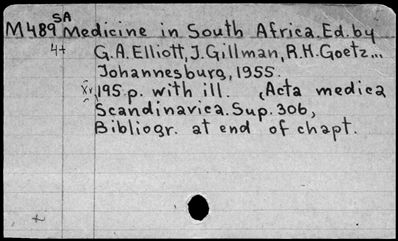 SA
M489 Medicine in South Africa. Ed. by
4+ G.A. Elliott, J. Gillman, R.H. Goetz...
Johannesburg, 1955.
XV, 195 p. with ill. (Acta medica
Scandinavica. Sup. 306,
Bibliogr. at end of chapt.